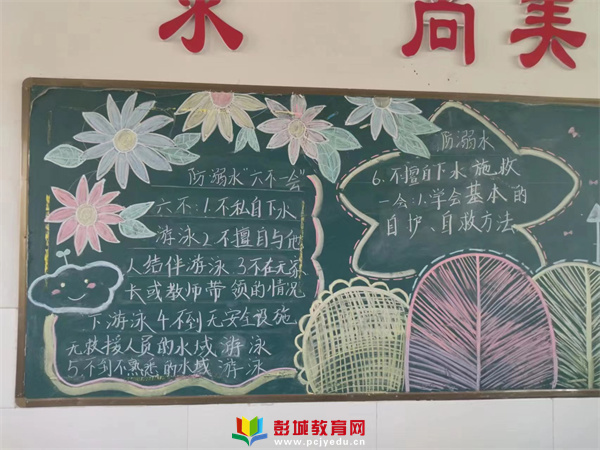 求 尚美
防溺水"六不一会"
六不:1.不私自下水
游泳2.不擅自与他
人结伴游泳.3不在无家
长或教师带领的情况
下游泳4.不到无安全设施
无救援人员的水域游泳
5.不到不熟悉的水域游泳
防溺水
6.不擅自下水施救
一会:1.学会基本的
自护、自救方法
彭城教育网
www.pcjyedu.cn